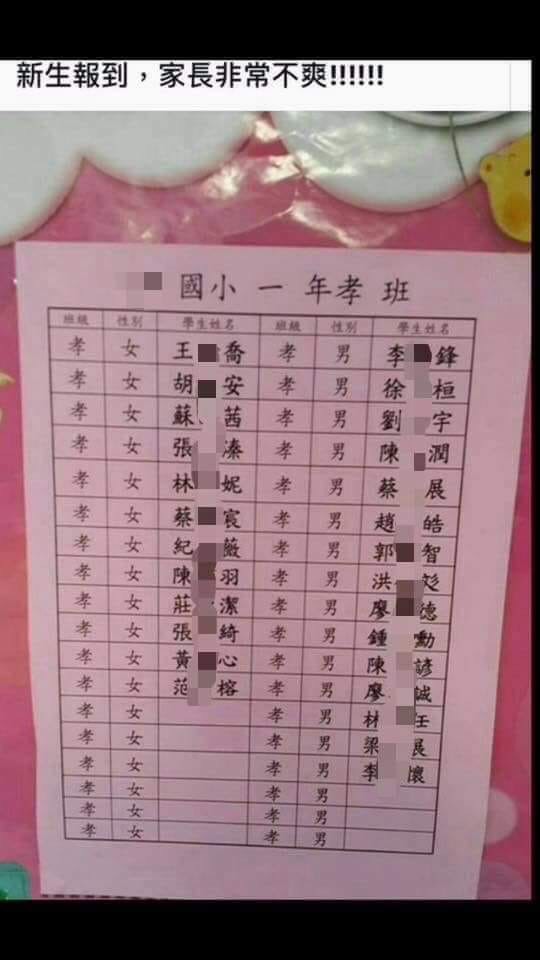 新生報到，家長非常不爽!!!!!!
國小 一 年孝 班
班級 性別 學生姓名 班級 性別 學生姓名
孝 女 王 喬 孝 男 李 鋒
孝 女 胡 安 孝 男 徐 桓
孝 女 蘇 茜 孝 男 劉 宇
孝 女 張 溱 孝 男 陳 潤
孝 女 林 妮 孝 男 蔡 展
孝 女 蔡 宸 孝 男 趙 皓
孝 女 紀 薇 孝 男 郭 智
孝 女 陳 羽 孝 男 洪
孝 女 莊 潔 孝 男 廖 德
孝 女 張 綺 孝 男 鍾 勳
孝 女 黃 心 孝 男 陳 諺
孝 女 范 榕 孝 男 廖 誠
孝 女 孝 男 林 任
孝 女 孝 男 梁 展
孝 女 孝 男 李 懷
孝 女 孝 男
孝 女 孝 男
孝 女 孝 男